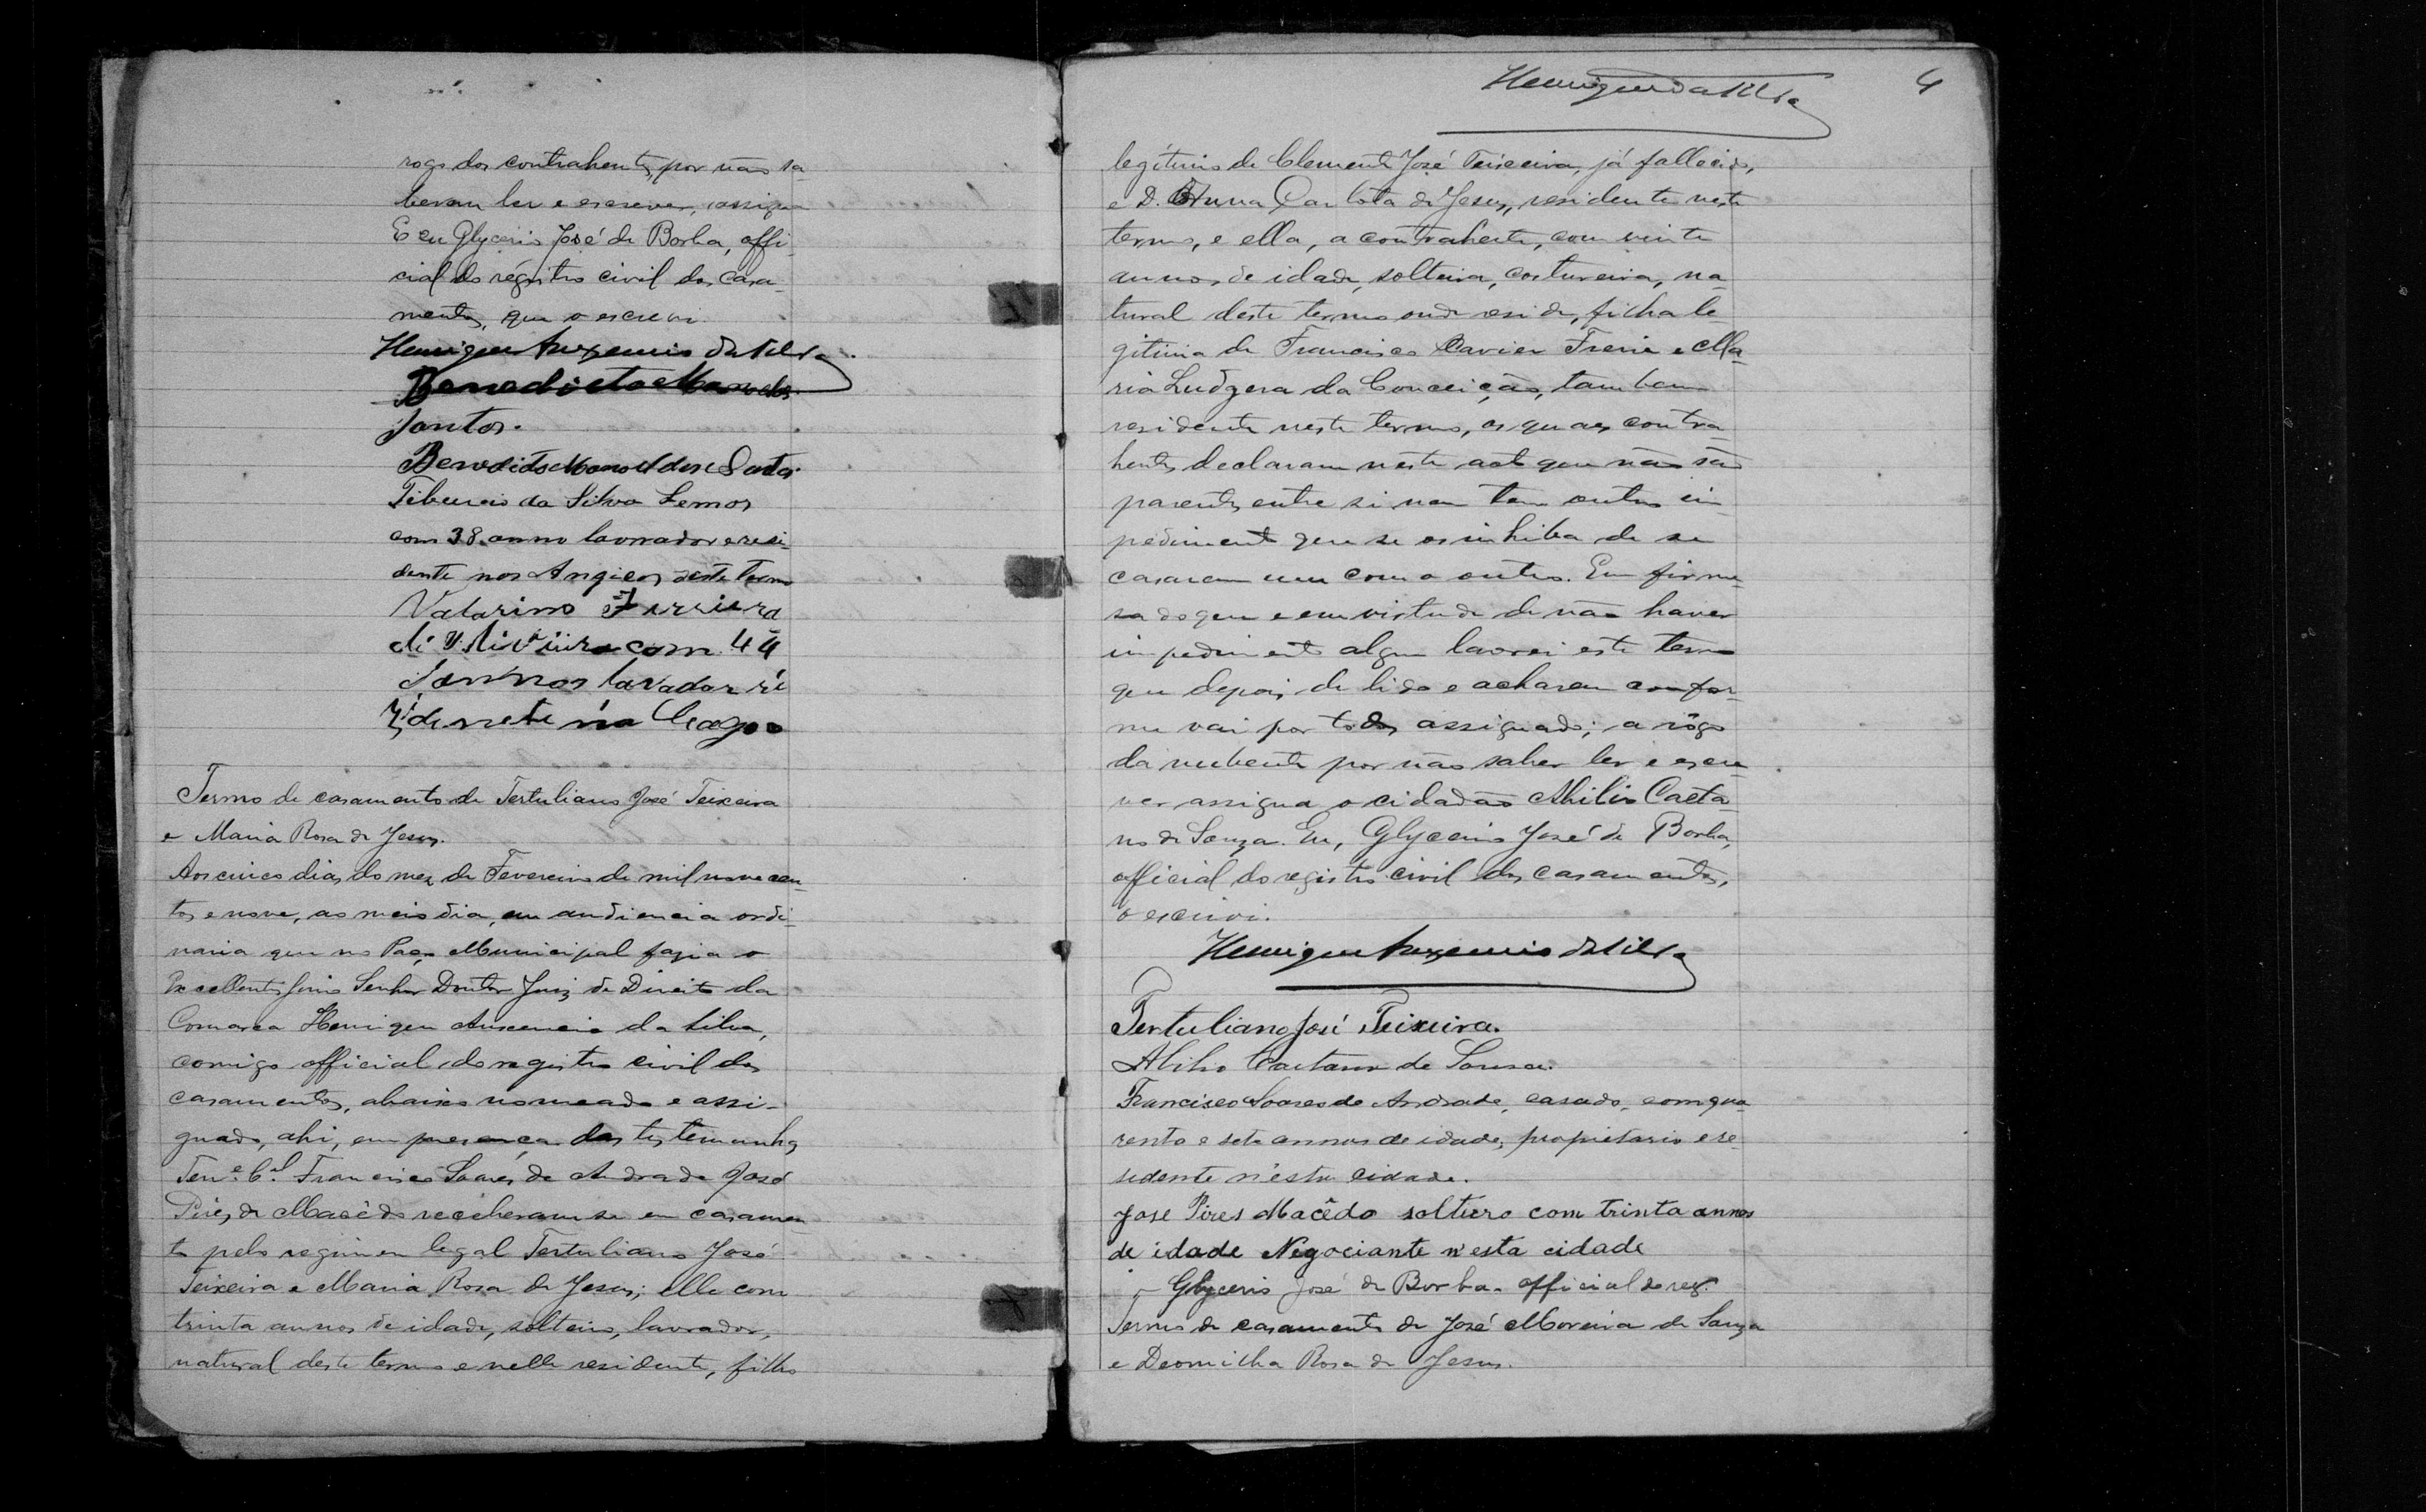 rogo dos contrahentes, por não sa-
berem ler e escrever, assigna
E eu Glycerio José de Borba, offi-
cial do régistro civil dos casa-
mentos, que o escrevi.
Henrique Auxencio da Silva.
Benedicto Mano dos
Santos.
Benedito Manoel dos Santos
Tiburcio da Silva Lemos
com 38 anno lavrador e resi-
dente nos Angicos deste termo
Valarino Ferriera
di Oliviira com 44
annos lavador ri
zidenete na Lagoa
Termo de casamento de Tertuliano José Teixeira
e Maria Rosa de Jesus.
Aos cinco dias do mez de Fevereiro de mil novecen-
tos e nove, ao meio dia, em audiencia ordi-
naria que no Paço Municipal fazia o
Excellentissimo Senhor Doutor Juiz de Direito da
Comarca Henrique Auxencio da Silva,
comigo official do registro civil dos
casamentos, abaixo nomeado e assi-
gnado, ahi, em presença das testemunhas
Ten.e C.el Francisco Soares de Andrade José
Pires de Macêdo receberam se em casamen
to pelo regimen legal Tertuliano José
Teixeira e Maria Rosa de Jesus; elle com
trinta annos de idade, solteiro, lavrador,
natural deste termo e nelle residente, filho
Henrique da Silva
4
legitimo de Clemente José Teixeira, já fallecido,
e D. Anna Carlota de Jesus, residente neste
termo, e ella, a contrahente, com vinte
annos de idade, solteira, costureira, na-
tural deste termo onde reside, filha le-
gitima de Francisco Xavier Freire e Ma-
ria Ludgera da Conceição, tambem
residente neste termo, os quaes contra-
hentes declaram neste acto que não são
parentes entre si nem tem outro im-
pedimento que se os inhiba de se
casarem um com o outro. Em firme-
sa do que e em virtude de não haver
impedimento algum lavrei este termo
que depois de lido e acharem confor-
me vai por todos assignado; a rôgo
da nubente por não saber ler e escre-
ver assigna o cidadão Abilio Caeta-
no de Souza. Eu, Glycerio José de Borba,
official do registro civil dos casamentos,
o escrivi.
Henrique Auxencio da Silva
Tertuliano José Teixeira.
Abilio Caetano de Sousa.
Francisco Soares de Andrade, casado, com qua-
renta e sete annos de idade, propietario e re-
sedente n'esta cidade.
Jose Pires Macêdo soltiero com trinta annos
de idade Negociante n'esta cidade
Glycerio José de Borba. official do reg.
Termo de casamento de José Moreira de Souza
e Deomilha Rosa de Jesus.